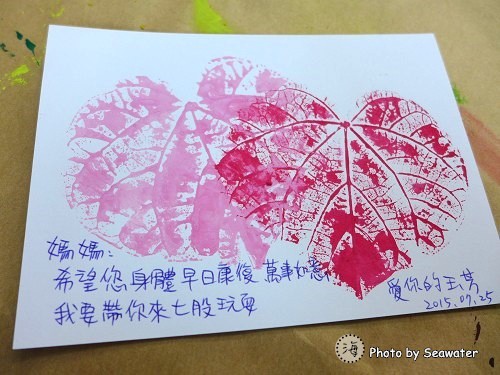 媽媽:
希望您身體早日康復 萬事如意
我要帶你來七股玩耍
愛你的玉芬
2015.07.25
海 Photo by Seawater